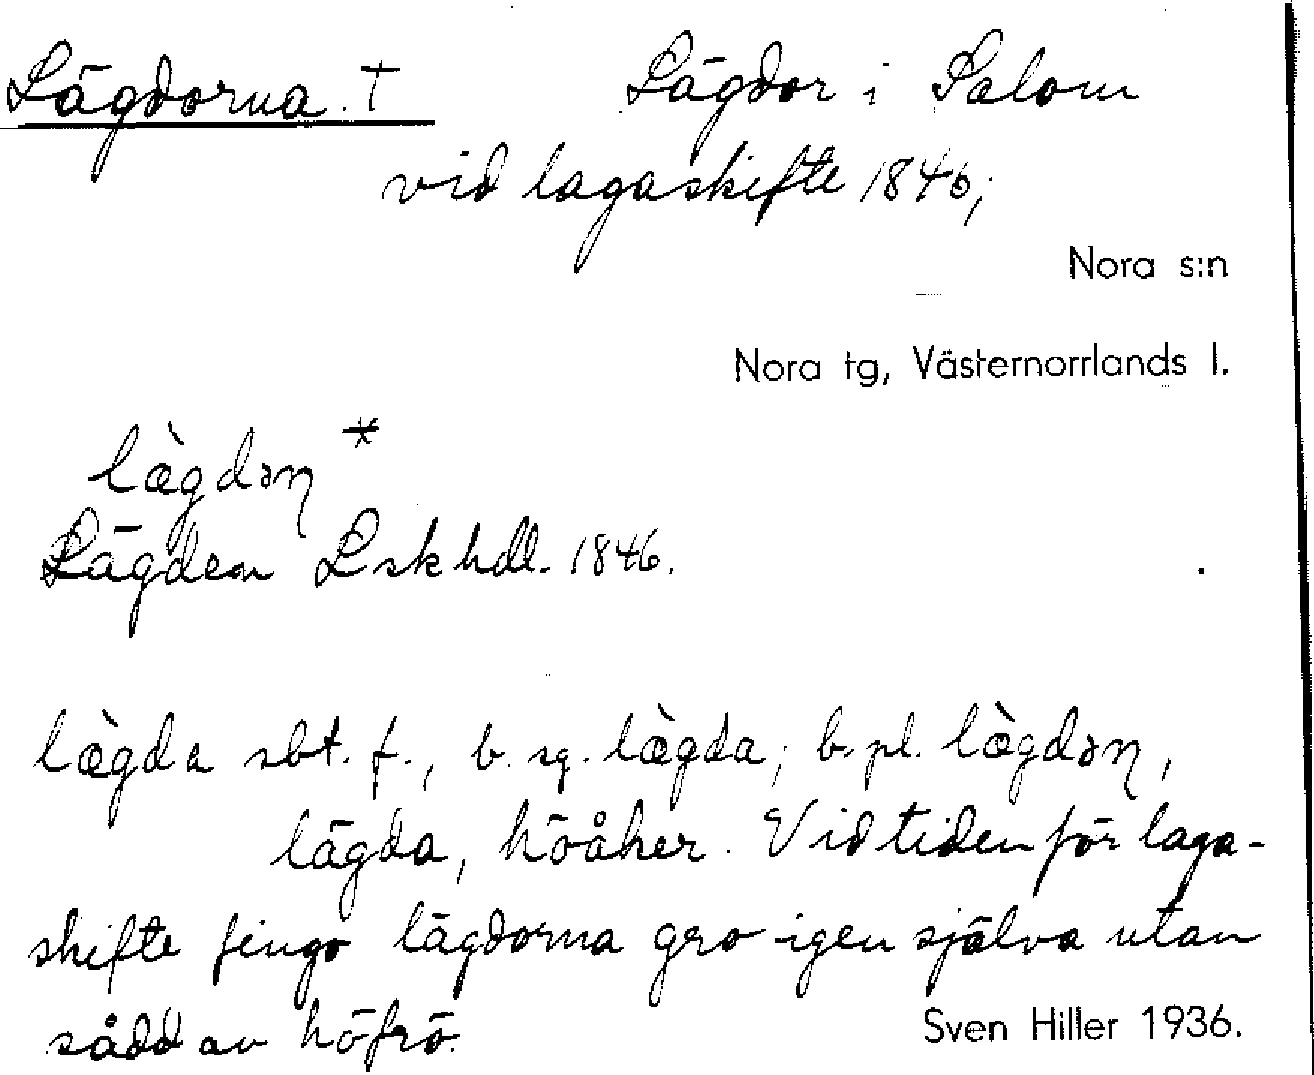 Lägdorna. † Lägdor i Salom
vid lagaskifte 1846;
Nora s:n
Nora tg, Västernorrlands l.
lægdəɳ *
Lägden Lskhdl. 1846.
lægda sbt. f., b. sg. lægda; b. pl. lægdəɳ,
lägda, höåker. Vid tiden för laga-
skifte fingo lägdorna gro igen själva utan
sådd av höfrö.
Sven Hiller 1936.